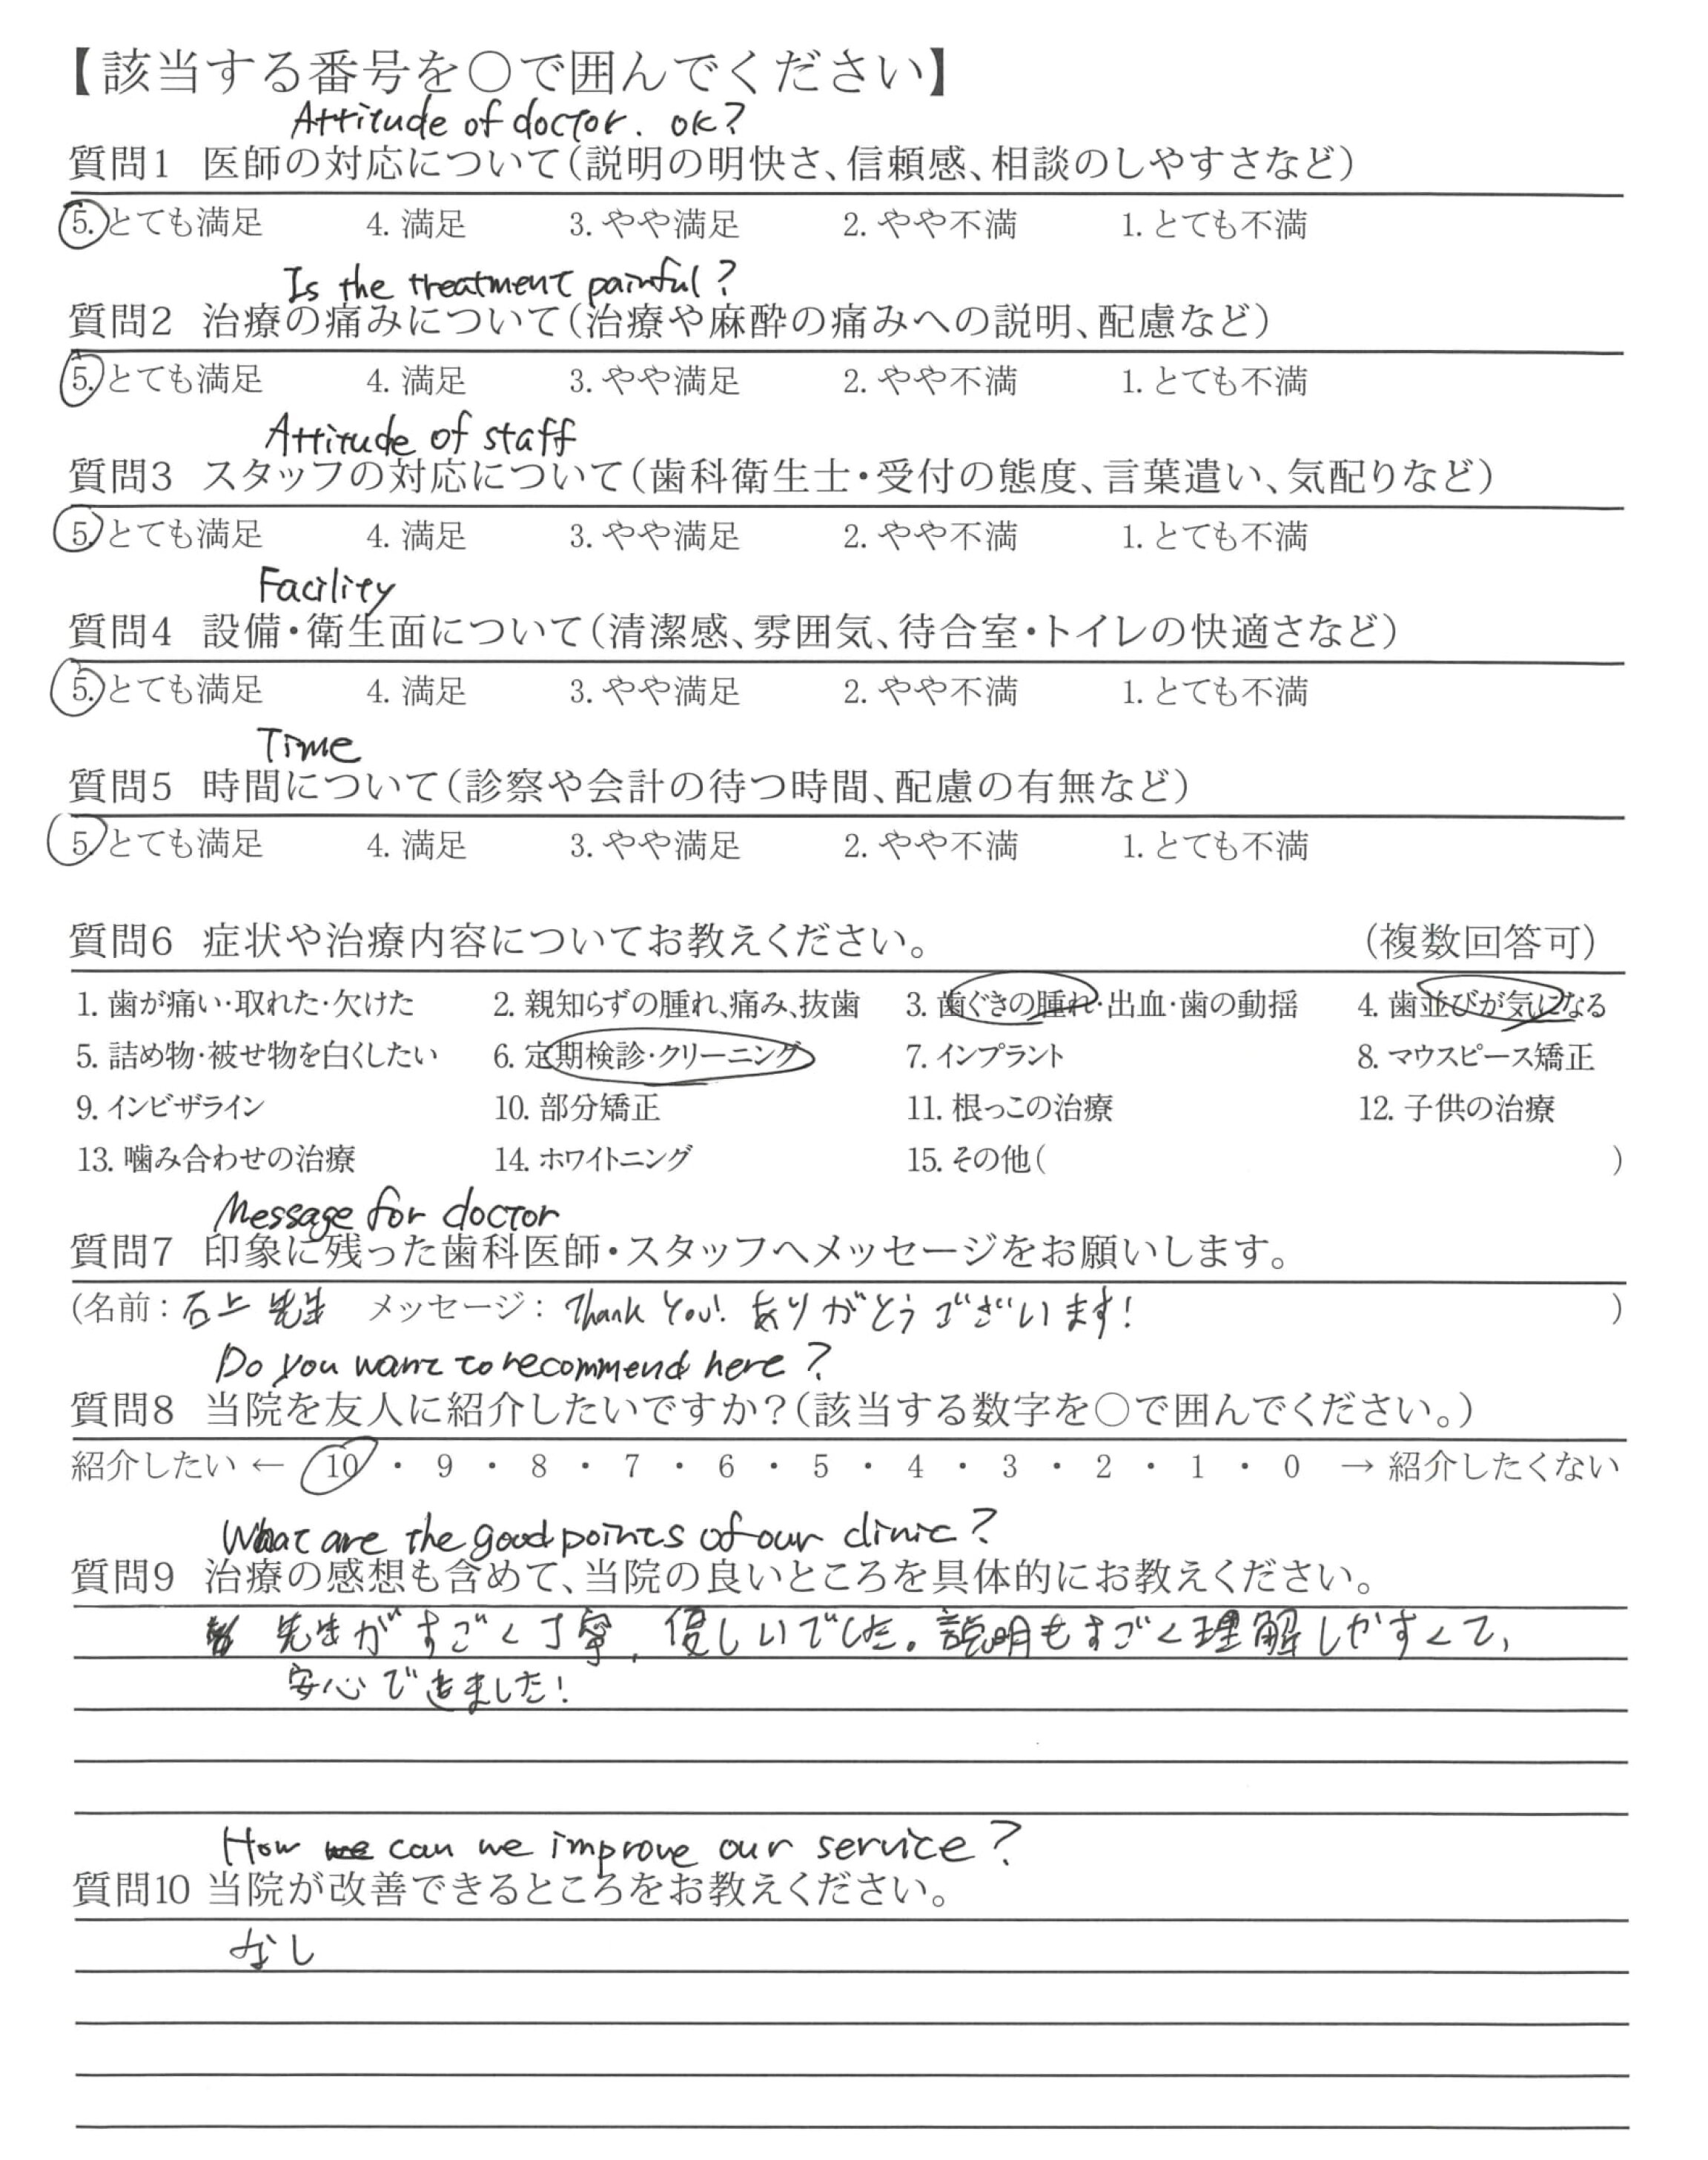 【該当する番号を○で囲んでください】
Attitude of doctor. ok?
質問1 医師の対応について（説明の明快さ、信頼感、相談のしやすさなど）
5. とても満足 4. 満足 3. やや満足 2. やや不満 1. とても不満
Is the treatment painful?
質問2 治療の痛みについて（治療や麻酔の痛みへの説明、配慮など）
5. とても満足 4. 満足 3. やや満足 2. やや不満 1. とても不満
Attitude of staff
質問3 スタッフの対応について（歯科衛生士・受付の態度、言葉遣い、気配りなど）
5. とても満足 4. 満足 3. やや満足 2. やや不満 1. とても不満
Facility
質問4 設備・衛生面について（清潔感、雰囲気、待合室・トイレの快適さなど）
5. とても満足 4. 満足 3. やや満足 2. やや不満 1. とても不満
Time
質問5 時間について（診察や会計の待つ時間、配慮の有無など）
5. とても満足 4. 満足 3. やや満足 2. やや不満 1. とても不満
質問6 症状や治療内容についてお教えください。 （複数回答可）
1. 歯が痛い・取れた・欠けた 2. 親知らずの腫れ、痛み、抜歯 3. 歯ぐきの腫れ・出血・歯の動揺 4. 歯並びが気になる
5. 詰め物・被せ物を白くしたい 6. 定期検診・クリーニング 7. インプラント 8. マウスピース矯正
9. インビザライン 10. 部分矯正 11. 根っこの治療 12. 子供の治療
13. 噛み合わせの治療 14. ホワイトニング 15. その他（ ）
Message for doctor
質問7 印象に残った歯科医師・スタッフへメッセージをお願いします。
（名前：石上 先生 メッセージ：Thank You! ありがとうございます! ）
Do you want to recommend here?
質問8 当院を友人に紹介したいですか？（該当する数字を○で囲んでください。）
紹介したい ← 10 ・ 9 ・ 8 ・ 7 ・ 6 ・ 5 ・ 4 ・ 3 ・ 2 ・ 1 ・ 0 → 紹介したくない
What are the good points of our clinic?
質問9 治療の感想も含めて、当院の良いところを具体的にお教えください。
先生がすごく丁寧, 優しいでした。説明もすごく理解しやすくて,
安心できました!
How can we improve our service?
質問10 当院が改善できるところをお教えください。
なし